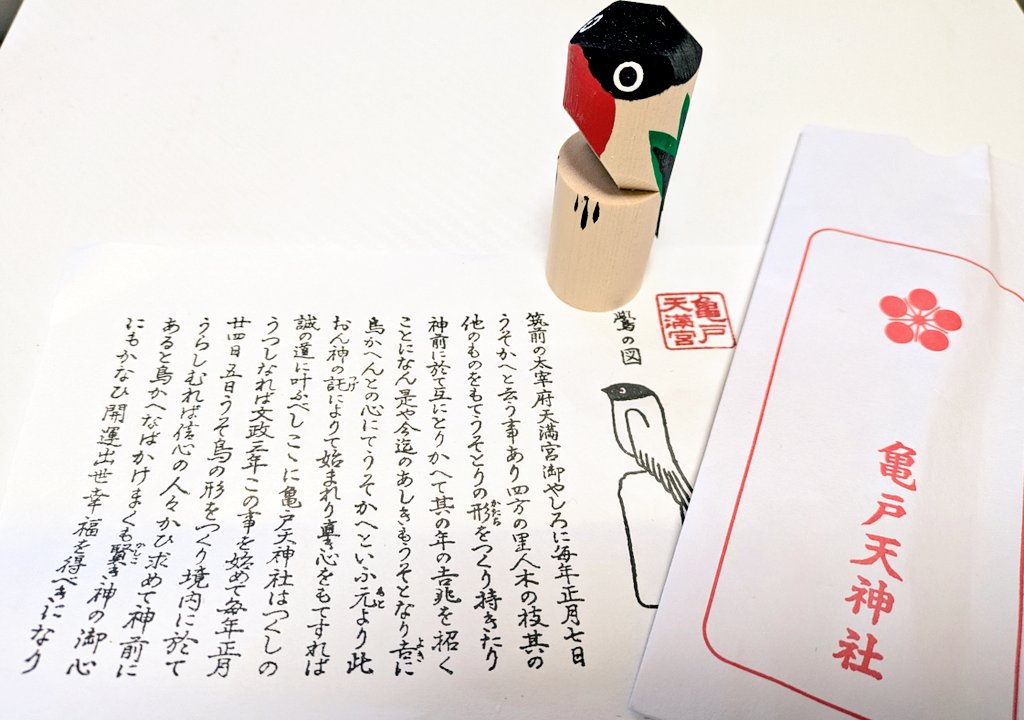 亀戸
天満宮
鷽の図
筑前の太宰府天満宮御やしろに毎年正月七日
うそかへと云う事あり四方の里人木の枝其の
他のものをもてうそとりの形をつくり持きたり
かたち
神前に於て互にとりかへて其の年の吉兆を招く
ことになん是や今迄のあしきもうそとなり吉に
よき
鳥かへんとの心にてうそかへといふ元より此
もと
おん神の託によりて始まれり真心をもてすれば
誠の道に叶ふべしここに亀戸天神社はつくしの
うつしなれば文政三年この事を始めて毎年正月
廿四日五日うそ鳥の形をつくり境内に於て
うらしむれば信心の人々かひ求めて神前に
あると鳥かへなばかけまくも賢き神の御心
かしこ
にもかなひ開運出世幸福を得べきになり
亀戸天神社